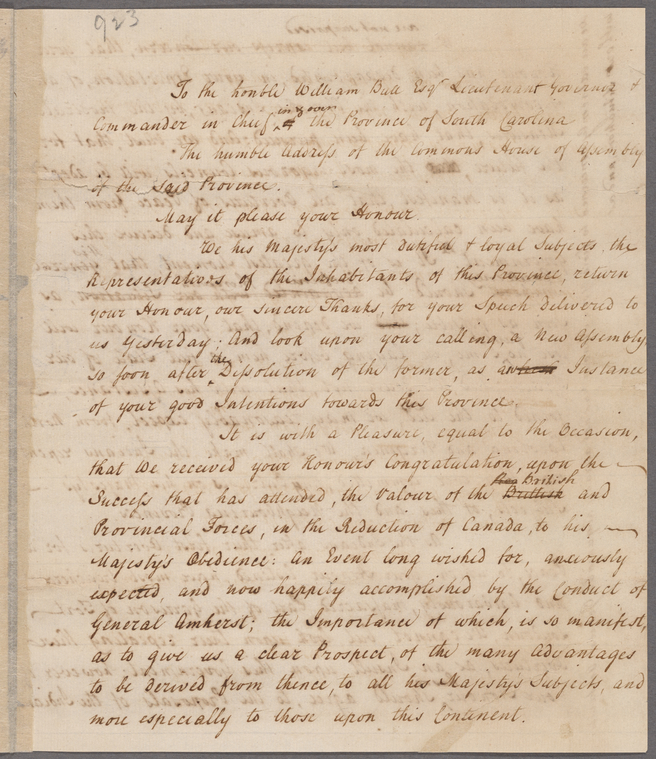 923
To the honble William Bull Esqr Lieutenant Governor &
Commander in Chief in & over the Province of South Carolina
The humble Address of the Commons House of Assembly
of the Said Province.
May it please your Honour
We his Majesty's most dutiful & loyal Subjects, the
Representatives of the Inhabitants of this Province, return
your Honour, our sincere Thanks, for your Speech delivered to
us Yesterday; And look upon your calling, a New Assembly,
so soon after the Dissolution of the former, as an Instance
of your good Intentions towards this Province.
It is with a Pleasure, equal to the Occasion,
that We received your Honour's Congratulation, upon the
Success that has attended, the Valour of the British Brittish and
Provincial Forces, in the Reduction of Canada, to his
Majesty's Obedience: An Event long wished for, anxiously
expected, and now happily accomplished by the Conduct of
General Amherst; the Importance of which, is so manifest,
as to give us a clear Prospect, of the many Advantages
to be derived from thence, to all his Majesty's Subjects, and
more especially to those upon this Continent.